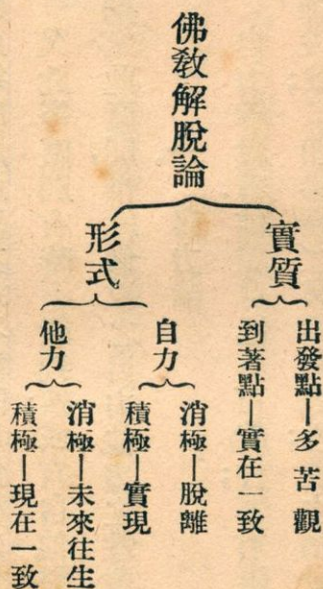 佛教解脫論
實質
出發點—多苦觀
到著點—實在一致
形式
自力
消極—脫離
積極—實現
他力
消極—未來往生
積極—現在一致